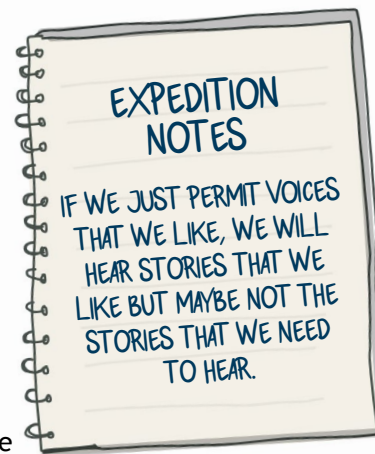 EXPEDITION
NOTES
IF WE JUST PERMIT VOICES
THAT WE LIKE, WE WILL
HEAR STORIES THAT WE
LIKE BUT MAYBE NOT THE
STORIES THAT WE NEED
TO HEAR.
e